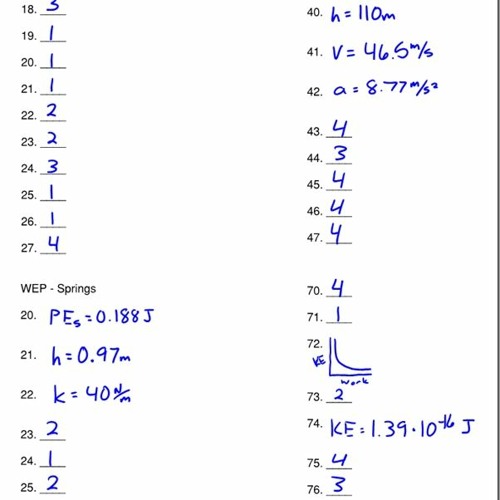 18. 3
19. 1
20. 1
21. 1
22. 2
23. 2
24. 3
25. 1
26. 1
27. 4
WEP - Springs
20. PEs = 0.188 J
21. h = 0.97m
22. k = 40 N/m
23. 2
24. 1
25. 2
40. h = 110m
41. V = 46.5 m/s
42. a = 8.77 m/s²
43. 4
44. 3
45. 4
46. 4
47. 4
70. 4
71. 1
72.
KE
Work
73. 2
74. KE = 1.39·10⁻¹⁶ J
75. 4
76. 3